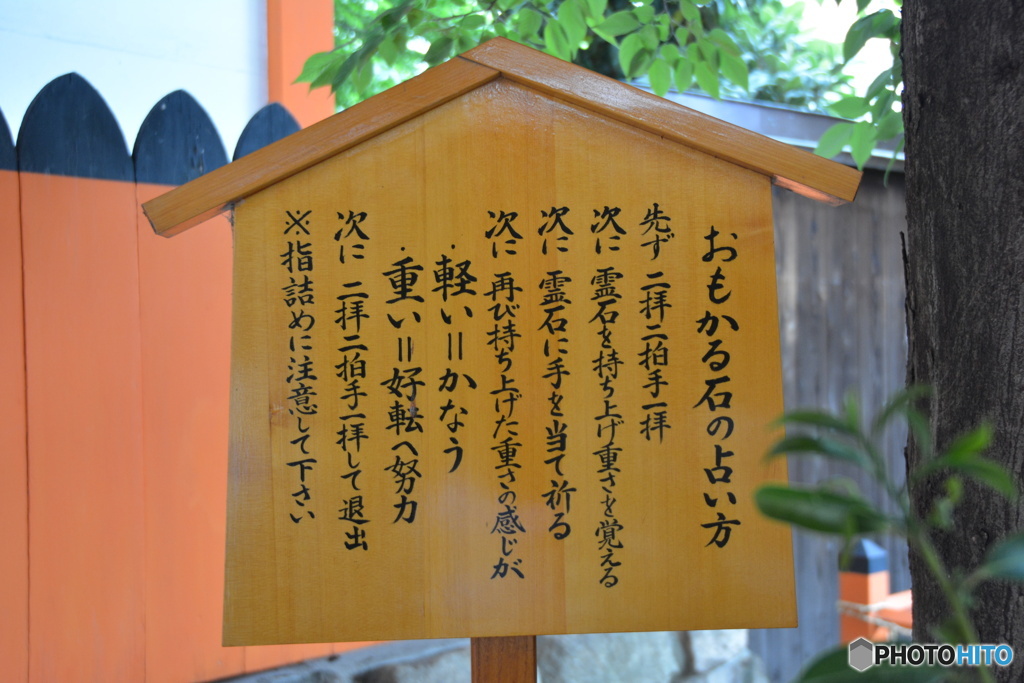 おもかる石の占い方
先ず 二拝二拍手一拝
次に 霊石を持ち上げ重さを覚える
次に 霊石に手を当て祈る
次に 再び持ち上げた重さの感じが
・軽い＝かなう
・重い＝好転へ努力
次に 二拝二拍手一拝して退出
※指詰めに注意して下さい
PHOTOHITO